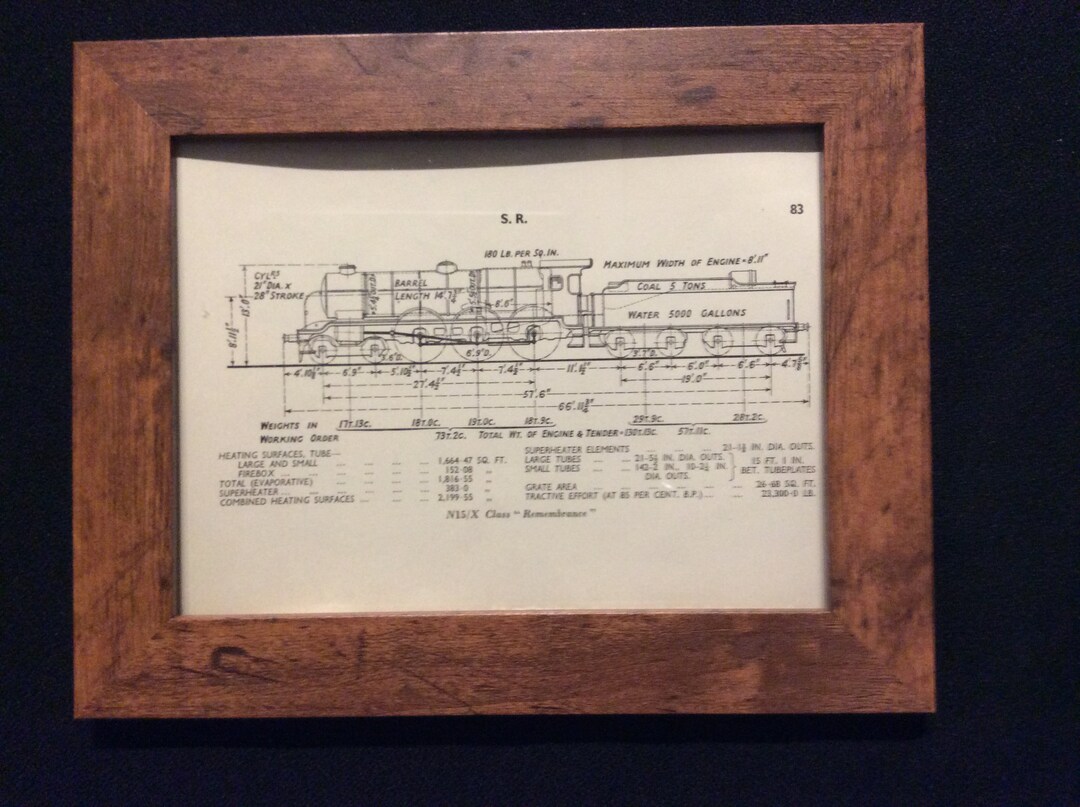 83
S. R.
180 LB. PER SQ. IN.
MAXIMUM WIDTH OF ENGINE = 8'.11"
CYLRS
21" DIA. X
28" STROKE
BARREL
LENGTH 14'.7¾"
COAL 5 TONS
WATER 5000 GALLONS
8'.8"
13'.0"
6'.9"D.
3'.7"D.
6'.9" 7'.4½" 7'.4½" 6'.6" 6'.0" 6'.6"
27'.4½" 19'.0"
57'.6"
66'.11¾"
WEIGHTS IN 17T.13C. 18T.0C. 19T.0C. 18T.9C. 29T.9C. 28T.2C.
WORKING ORDER 73T.2C. TOTAL WT. OF ENGINE & TENDER=130T.13C. 57T.11C.
HEATING SURFACES, TUBE—
LARGE AND SMALL ... ... ... 1,664·47 SQ. FT.
FIREBOX ... ... ... ... 152·08 „
TOTAL (EVAPORATIVE) ... ... ... 1,816·55 „
SUPERHEATER ... ... ... ... 383·0 „
COMBINED HEATING SURFACES ... ... ... 2,199·55 „
SUPERHEATER ELEMENTS ... ... ... 21-1⅜ IN. DIA. OUTS.
LARGE TUBES ... 21-5¼ IN. DIA. OUTS. 15 FT. 1 IN.
SMALL TUBES ... 142-2 IN., 10-2¼ IN. BET. TUBEPLATES
DIA. OUTS.
GRATE AREA ... ... ... ... 26·68 SQ. FT.
TRACTIVE EFFORT (AT 85 PER CENT. B.P.) ... ... 23,300·0 LB.
N15/X Class "Remembrance"